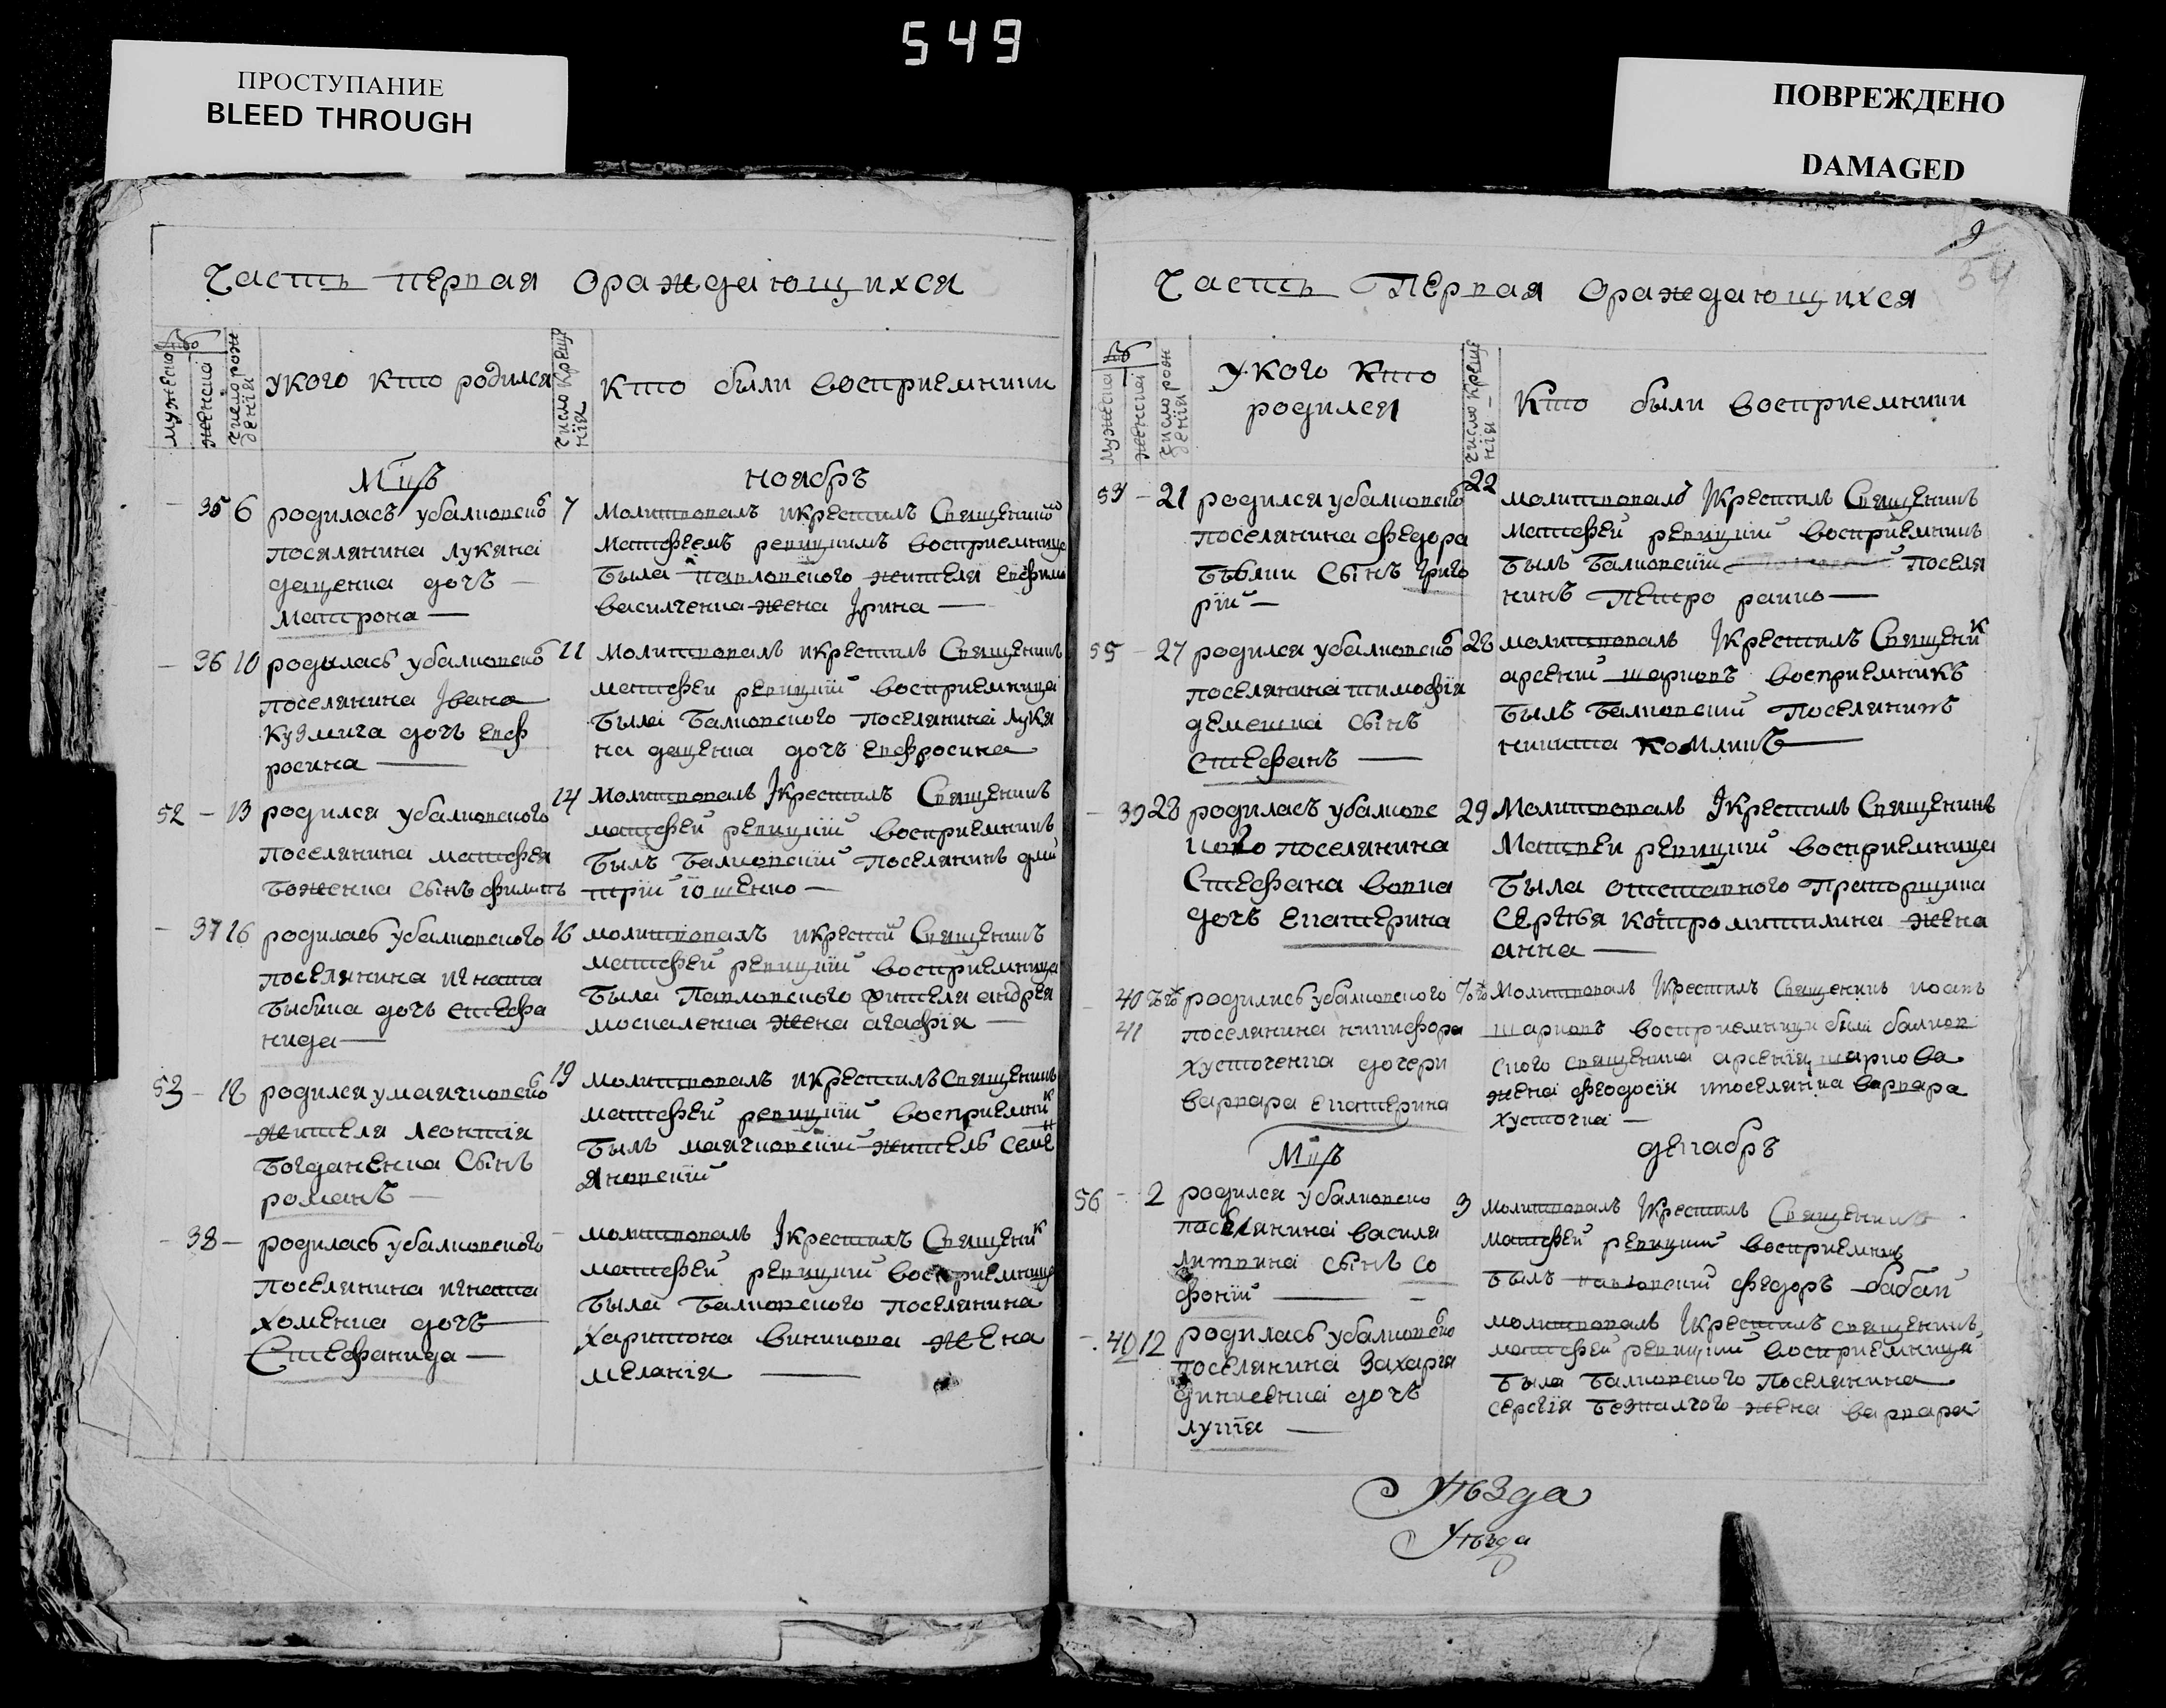 549
ПРОСТУПАНИЕ
BLEED THROUGH
ПОВРЕЖДЕНО
DAMAGED
9
54
Часть первая ораждающихся
мужеска
женска
число рож
денїя
укого кто родился
число крещѣ
нїя
кто были восприемники
Мцъ
ноябръ
35 6 родиласъ убалковског
поселянина лукяна
даценка дочъ
матрона —
7 Молитвовалъ икрестилъ Священикъ
матфеемъ ревуцкимъ восприемница
была павловского жителя
василченка жена Ірина —
— 36 10 родилась убалковског
поселянина Івана
Кузмича дочъ Евф
росина —
11 Молитвовалъ икрестилъ Священикъ
матфеи ревуцкїй восприемница
была балковского поселянина лукя
на даценка дочъ евфросина
52 — 13 родился убалковского
поселянина матфея
боженка сынъ филипъ
14 Молитвовалъ Ікрестилъ Священикъ
матфей ревуцкїй восприемникъ
былъ балковскїй поселянинъ дми
трїй їощенко —
— 37 16 родилась убалковского
поселянина игната
быбика дочъ стефа
нида —
16 молитвовалъ икрестй Священикъ
матфей ревуцкїй восприемница
была Павловского жителя андрея
москаленка жена агафїя —
53 — 18 родился умаячковског
жителя леонтїя
богданенка Сынъ
романъ —
19 молитвовалъ икрестилъ священикъ
матфей ревуцкїй восприемник
былъ маячковскїй житель семен
яновскїй
— 38 — родилась убалковского
поселянина игната
хоменка дочъ
Стефанида —
— молитвовалъ Ікрестилъ Священик
матфей ревуцкїй восприемница
была балковского поселянина
харитона виникова жена
меланїя —
Часть Первая ораждающихся
мужеска
женска
число рож
денїя
укого кто
родился
число креще
нїя
Кто были восприемники
54 — 21 родился убалковског
поселянина федора
бѣблик Сынъ григо
рїй —
22 молитвовалъ Ікрестилъ Священикъ
матфей ревуцкїй восприемникъ
былъ балковскїй поселя
нинъ Петро рацко —
55 — 27 родился убалковског
поселянина тимофїя
демешка сынъ
Стефанъ —
28 молитвовалъ Ікрестилъ Священик
арсений шарковъ восприемникъ
былъ балковскїй поселянинъ
никита комликъ
— 39 28 родиласъ убалковс
кого поселянина
Стефана вовка
дочъ екатерина
29 Молитвовалъ Ікрестилъ Священикъ
Матвеи ревуцкїй восприемница
была отставного Прапорщика
Сергѣя костромитилина жена
анна —
— 40
41
родились убалковского
поселянина никифора
хусточенка дочери
варвара екатерина
Молитвовалъ Ікрестилъ Священикъ иоанъ
шарковъ восприемници были балков
ского священика арсенїя шаркова
жена феодосїя ипоселянка варвара
хусточка —
Мцъ
декабръ
56 — 2 родился убалковско
поселянина василя
литвина сынъ со
фонїй —
3 молитвовалъ Ікрестилъ Священикъ
матфей ревуцкїй восприемникъ
былъ павловскїй федоръ бабак
— 40 12 родилась убалковског
поселянина Захарїя
дочъ
лукїя —
молитвовалъ Ікрестилъ священикъ
матфей ревуцкїй восприемница
была балковского поселянина
сергїя безпалчого жена варвара
Уѣзда
Уѣзда